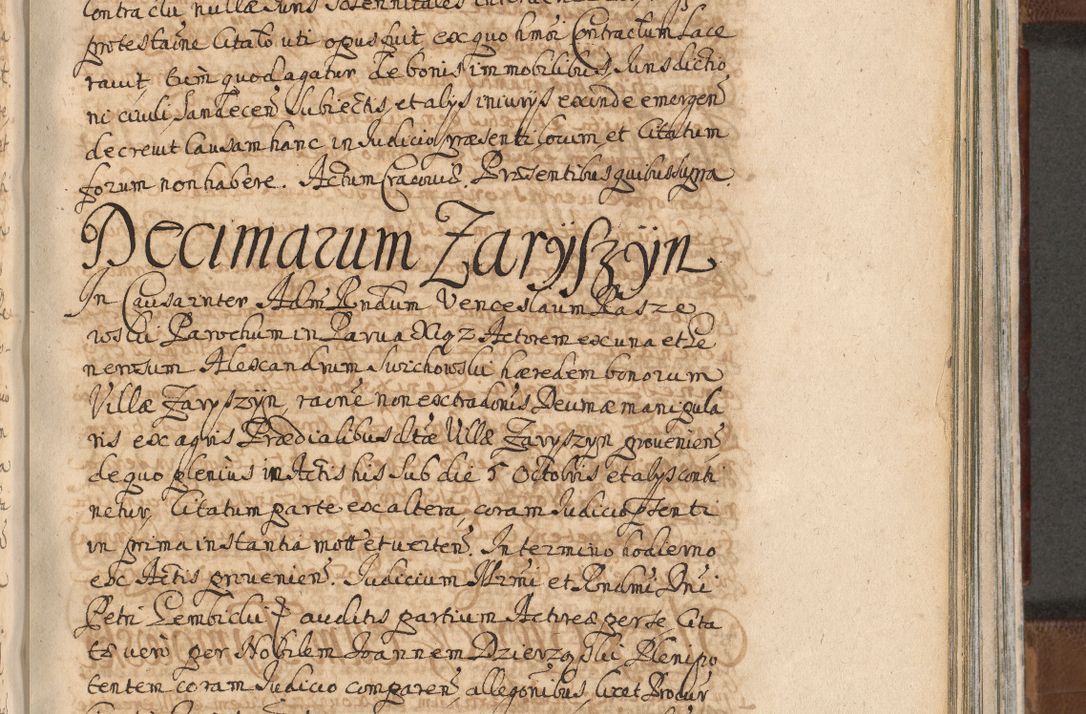 protestatne Citato uti opus fuit, ex quo hmoi Contractum lace
ravit, Cum quod agatur de bonis immobilibus Jurisdictio
ni civili Sandecen Subiectis, et alijs iniurijs exinde emergen
decrevit Causam hanc in Judicio præsenti locum, et Citatum
forum non habere. Actum Cracoviæ. Præsentibus quibus supra.
Decimarum Zaryszyn
In Causa inter Adm Rndum Venceslaum Rasze
wski Parochum in Parva Xiąz Actorem ex una et Ge
nerosum Alexandrum Swichowski hæredem bonorum
Villæ Zaryszyn, raone non extradonis Decimæ manipula
ris ex agris Prædialibus dtæ Villæ Zaryszyn provenien
de quo plenius in Actis his sub die 5 Octobris et alijs conti
netur, Citatum parte ex altera, coram Judicio psenti
in prima instantia mott et verten. In termino hodierno
ex Actis provenien. Judicium Illrmi et Rndmi Dni
Petri Gembicki auditis partium Actoreæ per se, Cita
tæ vero per Nobilem Joannem Dzierzgski Plenipo
tentem coram Judicio comparen allegonibus, licet Procur